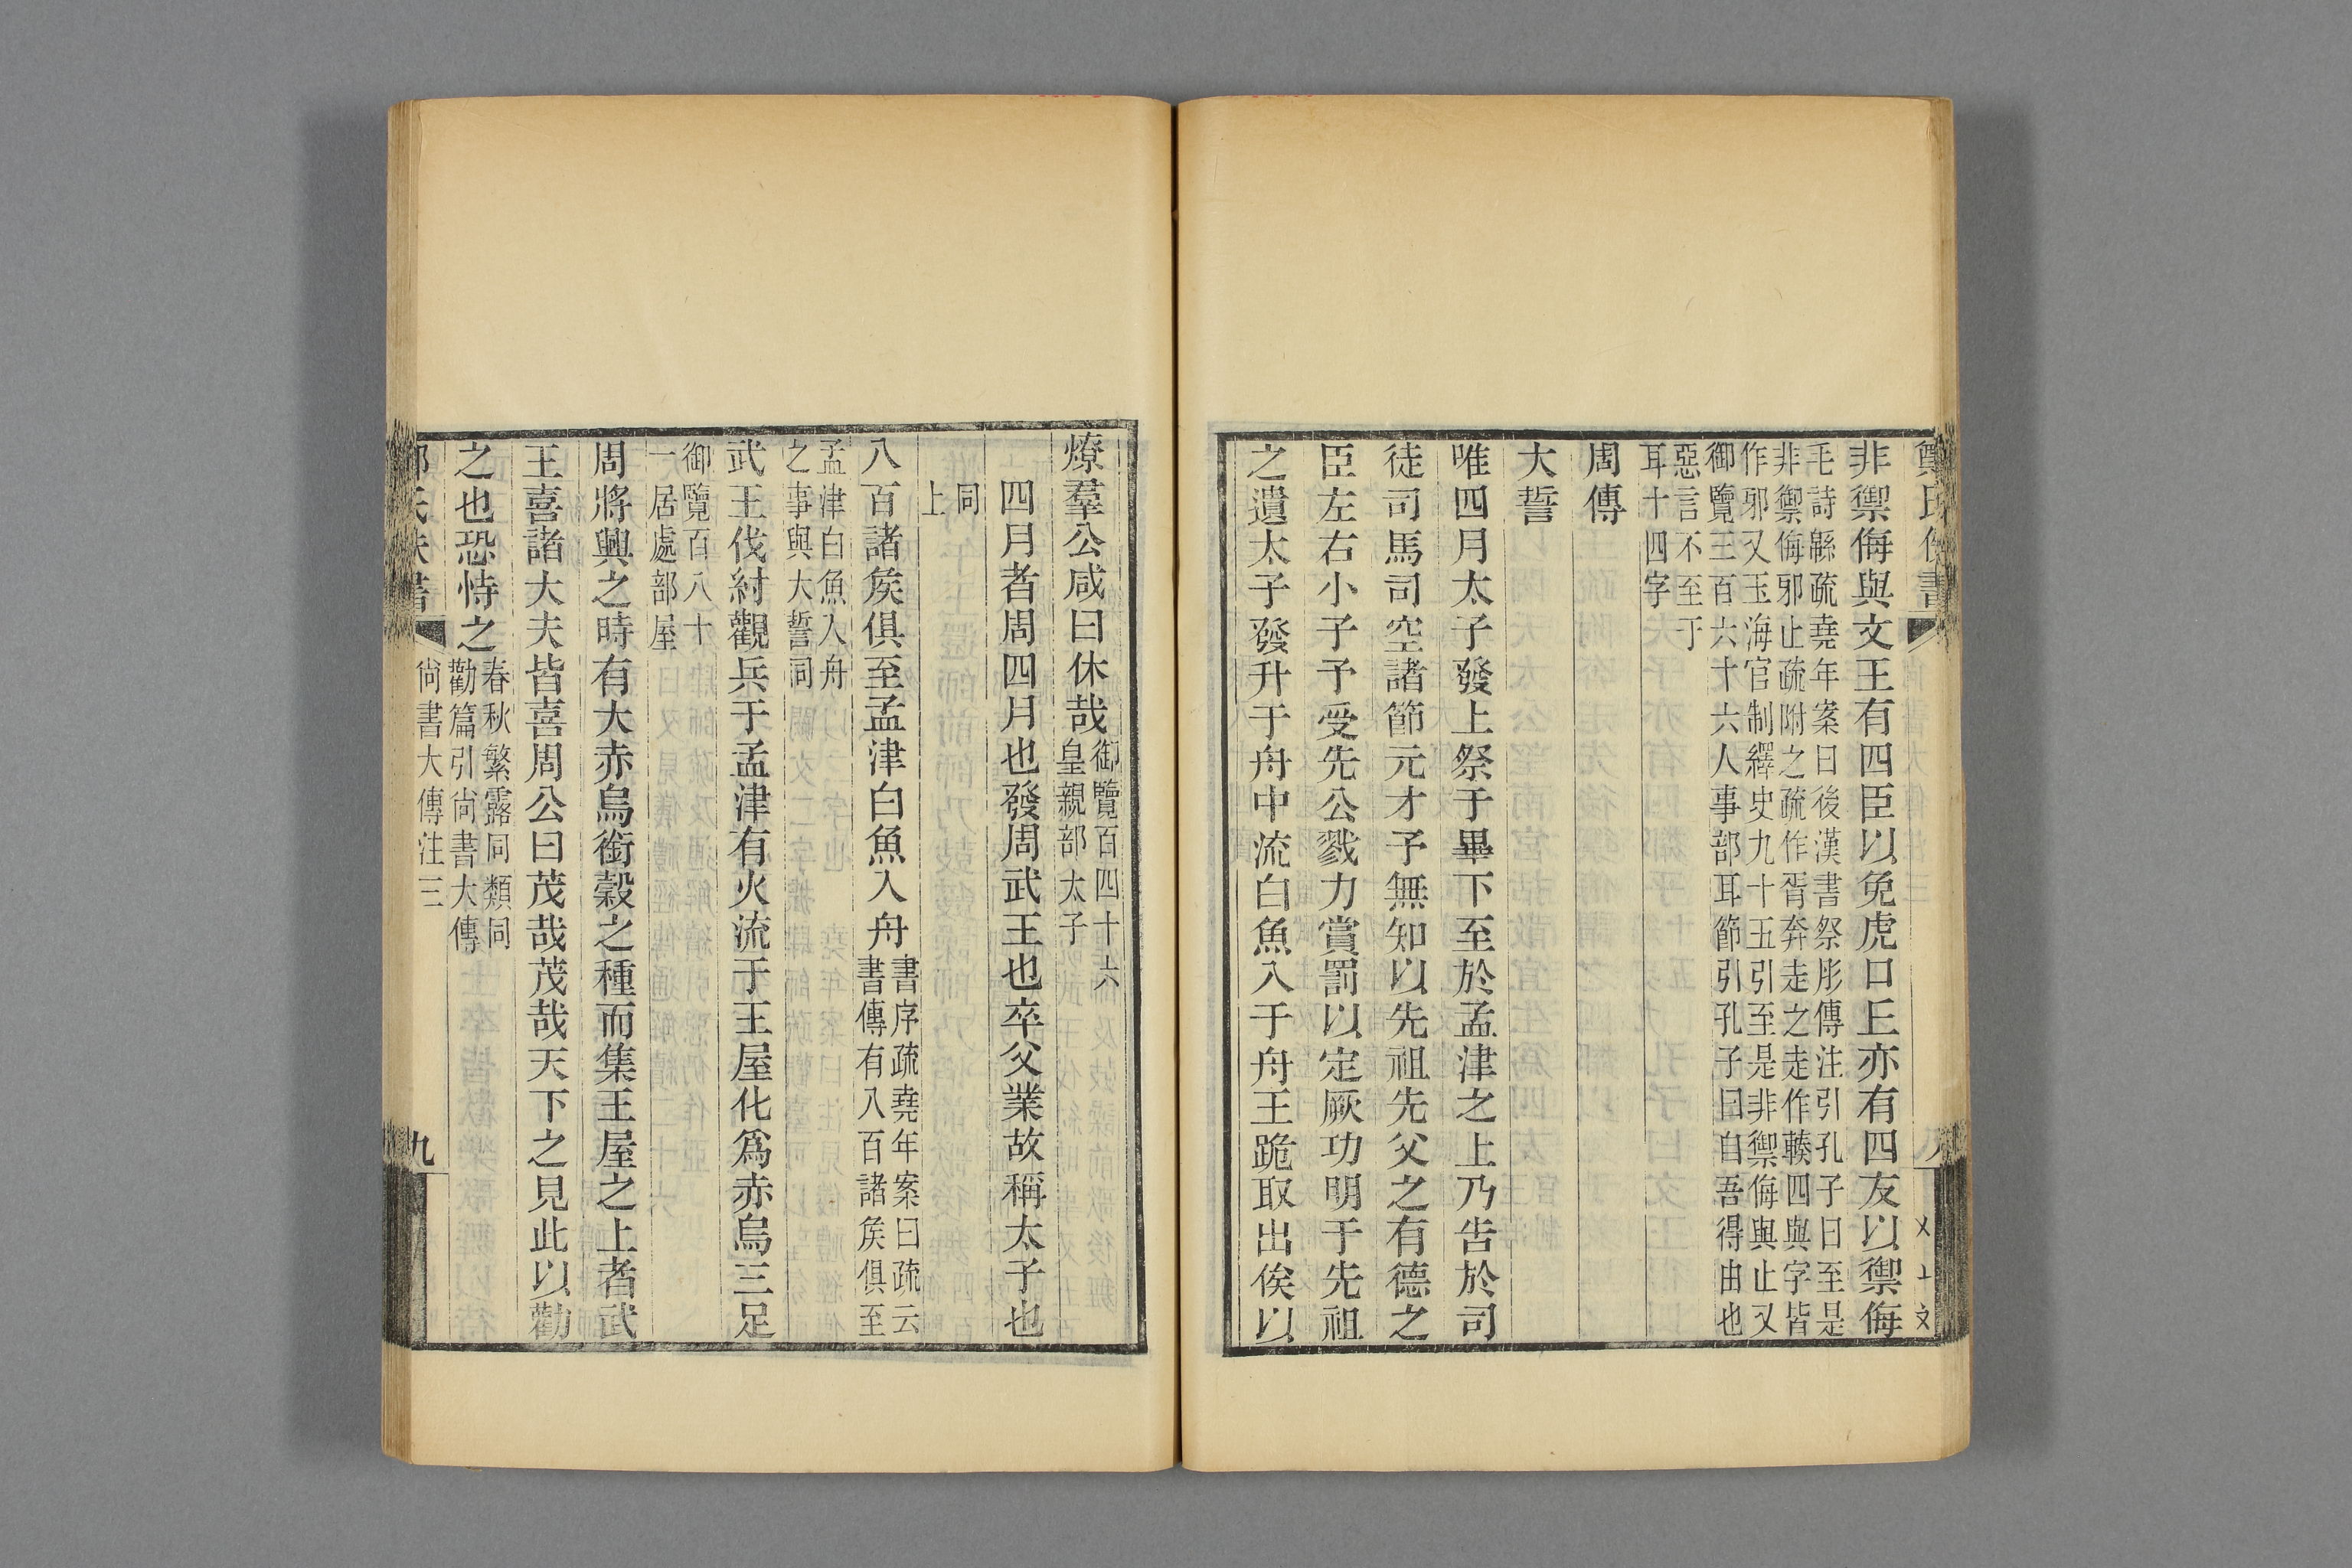 非禦侮與文王有四臣以免虎口𠀉亦有四友以禦侮
毛詩緜疏堯年案曰後漢書祭肜傳注引孔子曰至是
非禦侮邪止疏附之疏作胥奔走之走作輳四與字皆
作邪又玉海官制繹史九十五引至是非禦侮與止又
御覽三百六十六人事部耳節引孔子曰自吾得由也
惡言不至于
耳十四字
周傳
大誓
唯四月太子發上祭于畢下至於孟津之上乃告於司
徒司馬司空諸節元才予無知以先祖先父之有德之
臣左右小子予受先公戮力賞罰以定厥功明于先祖
之遺太子發升于舟中流白魚入于舟王跪取出俟以
燎羣公咸曰休哉
御覽百四十六
皇親部太子
四月者周四月也發周武王也卒父業故稱太子也
同
上
八百諸矦俱至孟津白魚入舟
書序疏堯年案曰疏云
書傳有八百諸矦俱至
孟津白魚入舟
之事與大誓同
武王伐紂觀兵于孟津有火流于王屋化爲赤烏三足
御覽百八十
一居處部屋
周將興之時有大赤烏銜穀之種而集王屋之上者武
王喜諸大夫皆喜周公曰茂哉茂哉天下之見此以勸
之也恐恃之
春秋繁露同類同
勸篇引尙書大傳
尙書大傳注三
九